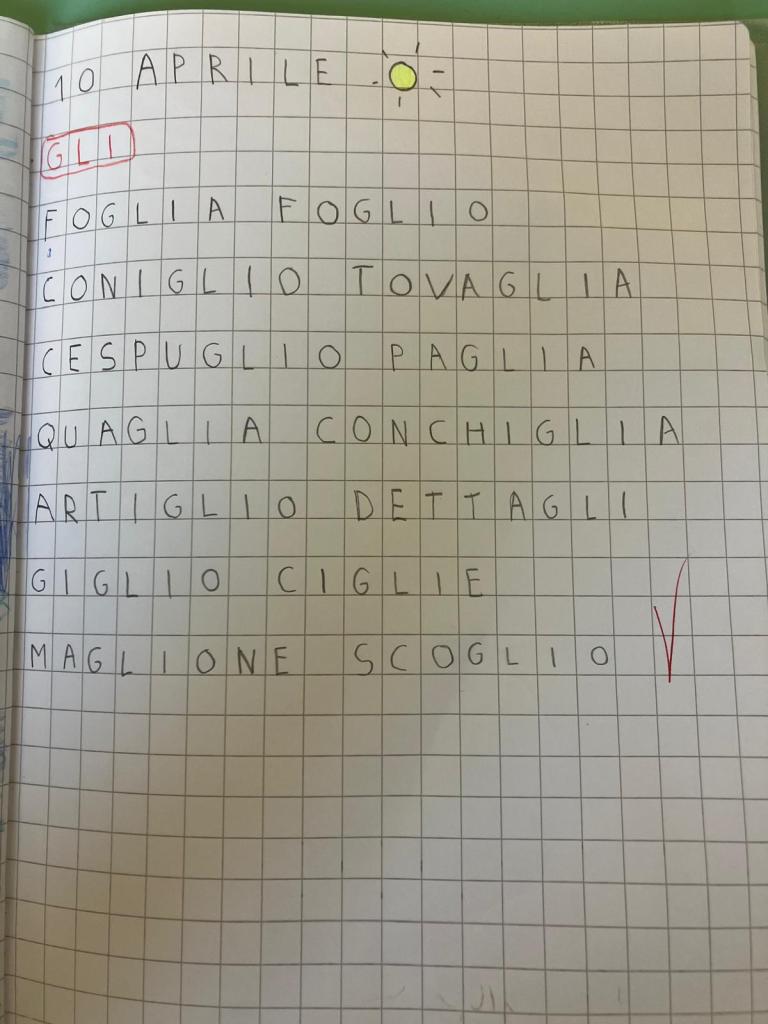 10 APRILE
GLI
FOGLIA FOGLIO
CONIGLIO TOVAGLIA
CESPUGLIO PAGLIA
QUAGLIA CONCHIGLIA
ARTIGLIO DETTAGLI
GIGLIO CIGLIE
MAGLIONE SCOGLIO